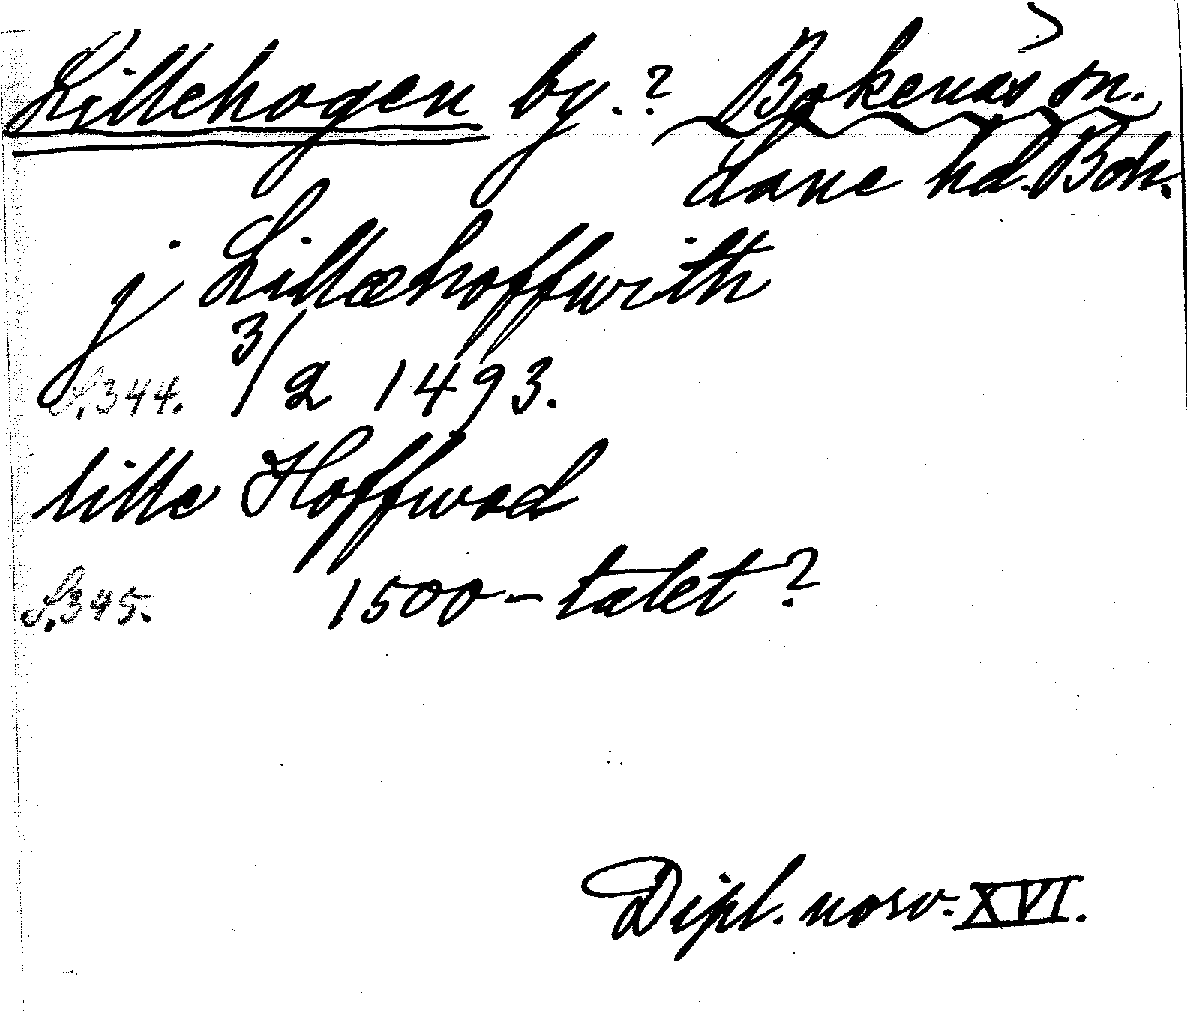 Lillehogen by.? Bokenäs sn.
Lane hd. Boh.
j Lillæhoffwith
S. 344. 3/2 1493.
lille Hoffwod
S. 345. 1500-talet?
Dipl. norv. XVI.